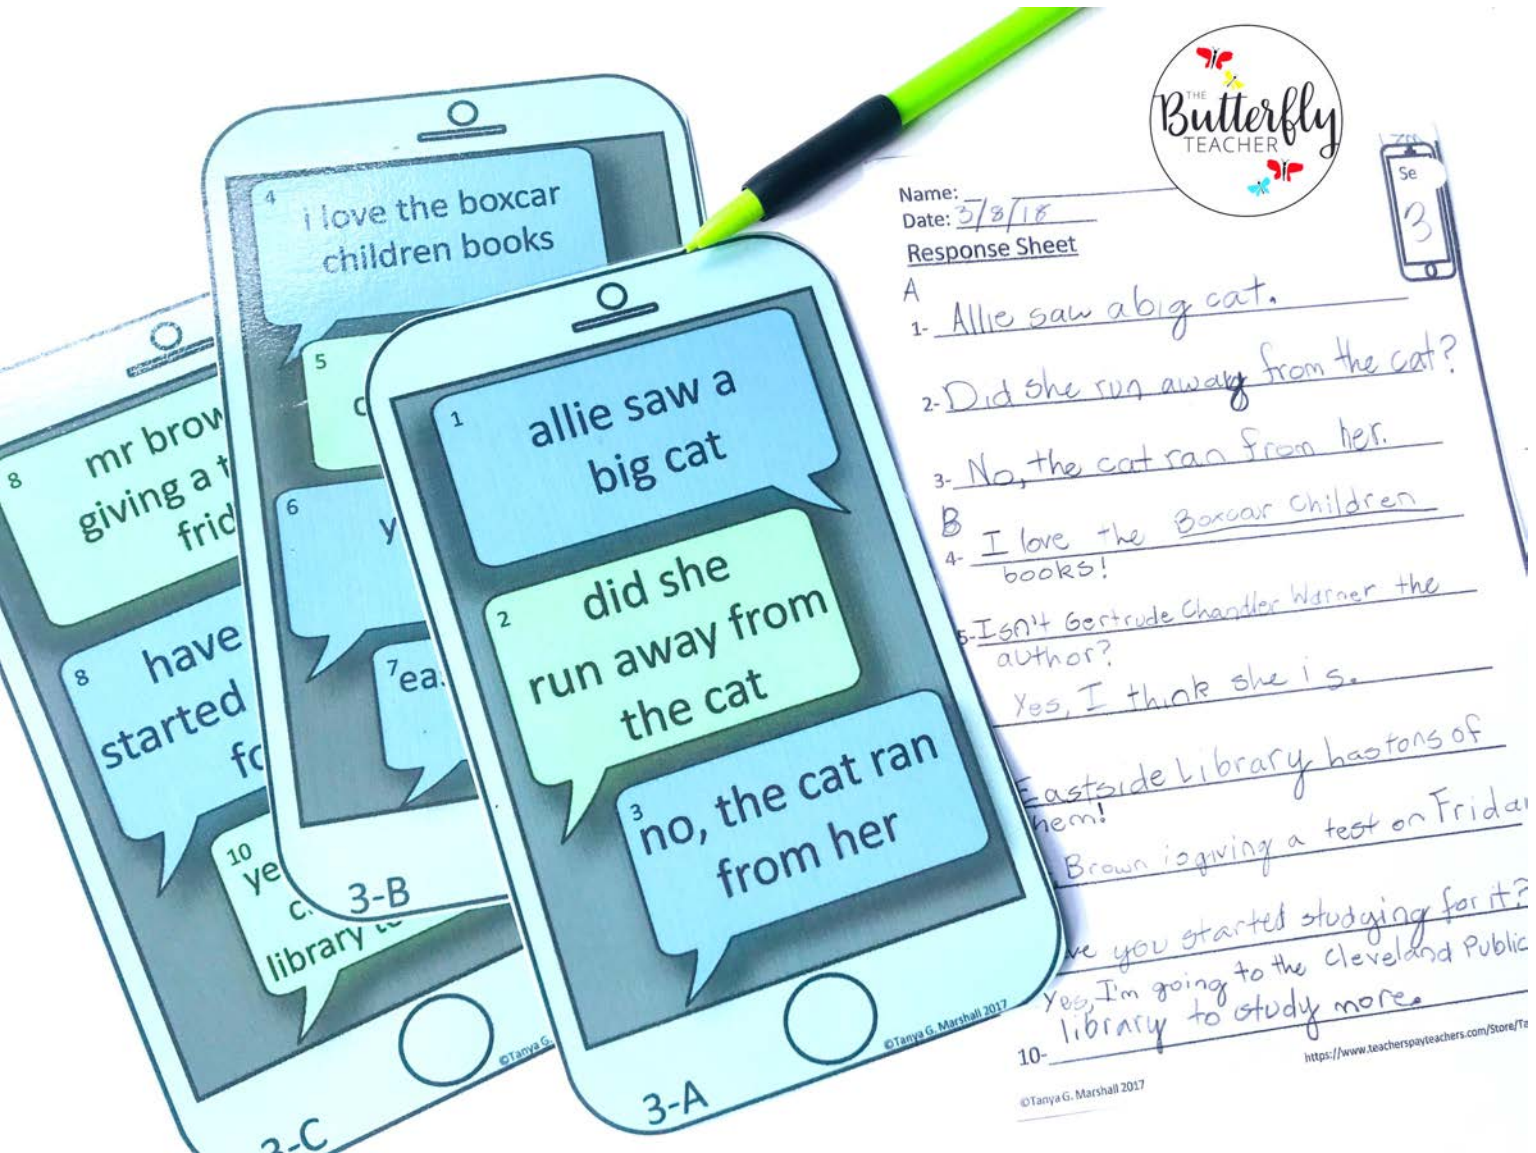 THE
Butterfly
TEACHER
8
mr brow
giving a t
frid
8
have
started
fo
10
ye
c.
library to
©Tanya G.
3-C
4
i love the boxcar
children books
5
c
6
y
7
ea.
3-B
1
allie saw a
big cat
2
did she
run away from
the cat
3
no, the cat ran
from her
©Tanya G. Marshall 2017
3-A
Name:
Date: 3/8/18
Response Sheet
Se
3
A
1- Allie saw a big cat.
2- Did she run away from the cat?
3- No, the cat ran from her.
B
4- I love the Boxcar Children
books!
5- Isn't Gertrude Chandler Warner the
author?
Yes, I think she is.
Eastside Library has tons of
hem!
Brown is giving a test on Frida
ve you started studying for it?
Yes, I'm going to the Cleveland Public
library to study more.
10-
https://www.teacherspayteachers.com/Store/Ta
©Tanya G. Marshall 2017